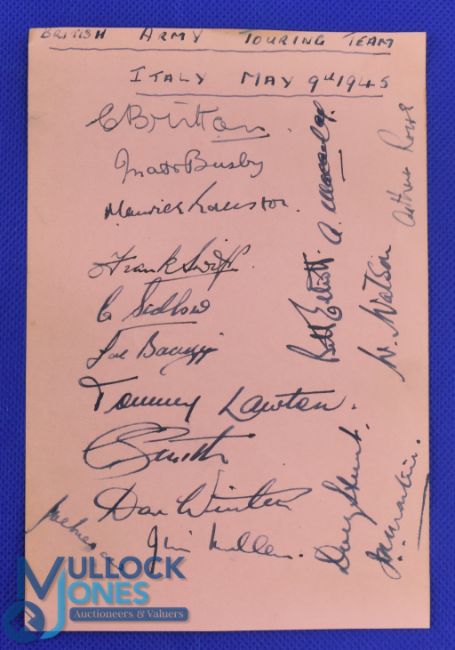 BRITISH ARMY TOURING TEAM
ITALY MAY 9th 1945
C Britton.
Matt Busby
Maurice
Frank Swift.
C Sidlow
Joe Bacuzzi
Tommy Lawton.
C Smith
Dan Winter
Jim Mullen.
Arthur Rowe
W. Watson
Billy Elliott.
Doug Hunt.
MULLOCK
JONES
Auctioneers & Valuers